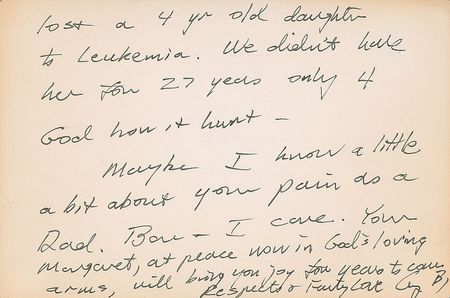 lost a 4 yr old daughter
to Leukemia. We didn't have
her for 27 years only 4
God how it hurt -
Maybe I know a little
a bit about your pain as a
Dad. Bar - I care. Your
Margaret, at peace now in God's loving
arms, will bring you joy for years to come
Respects &